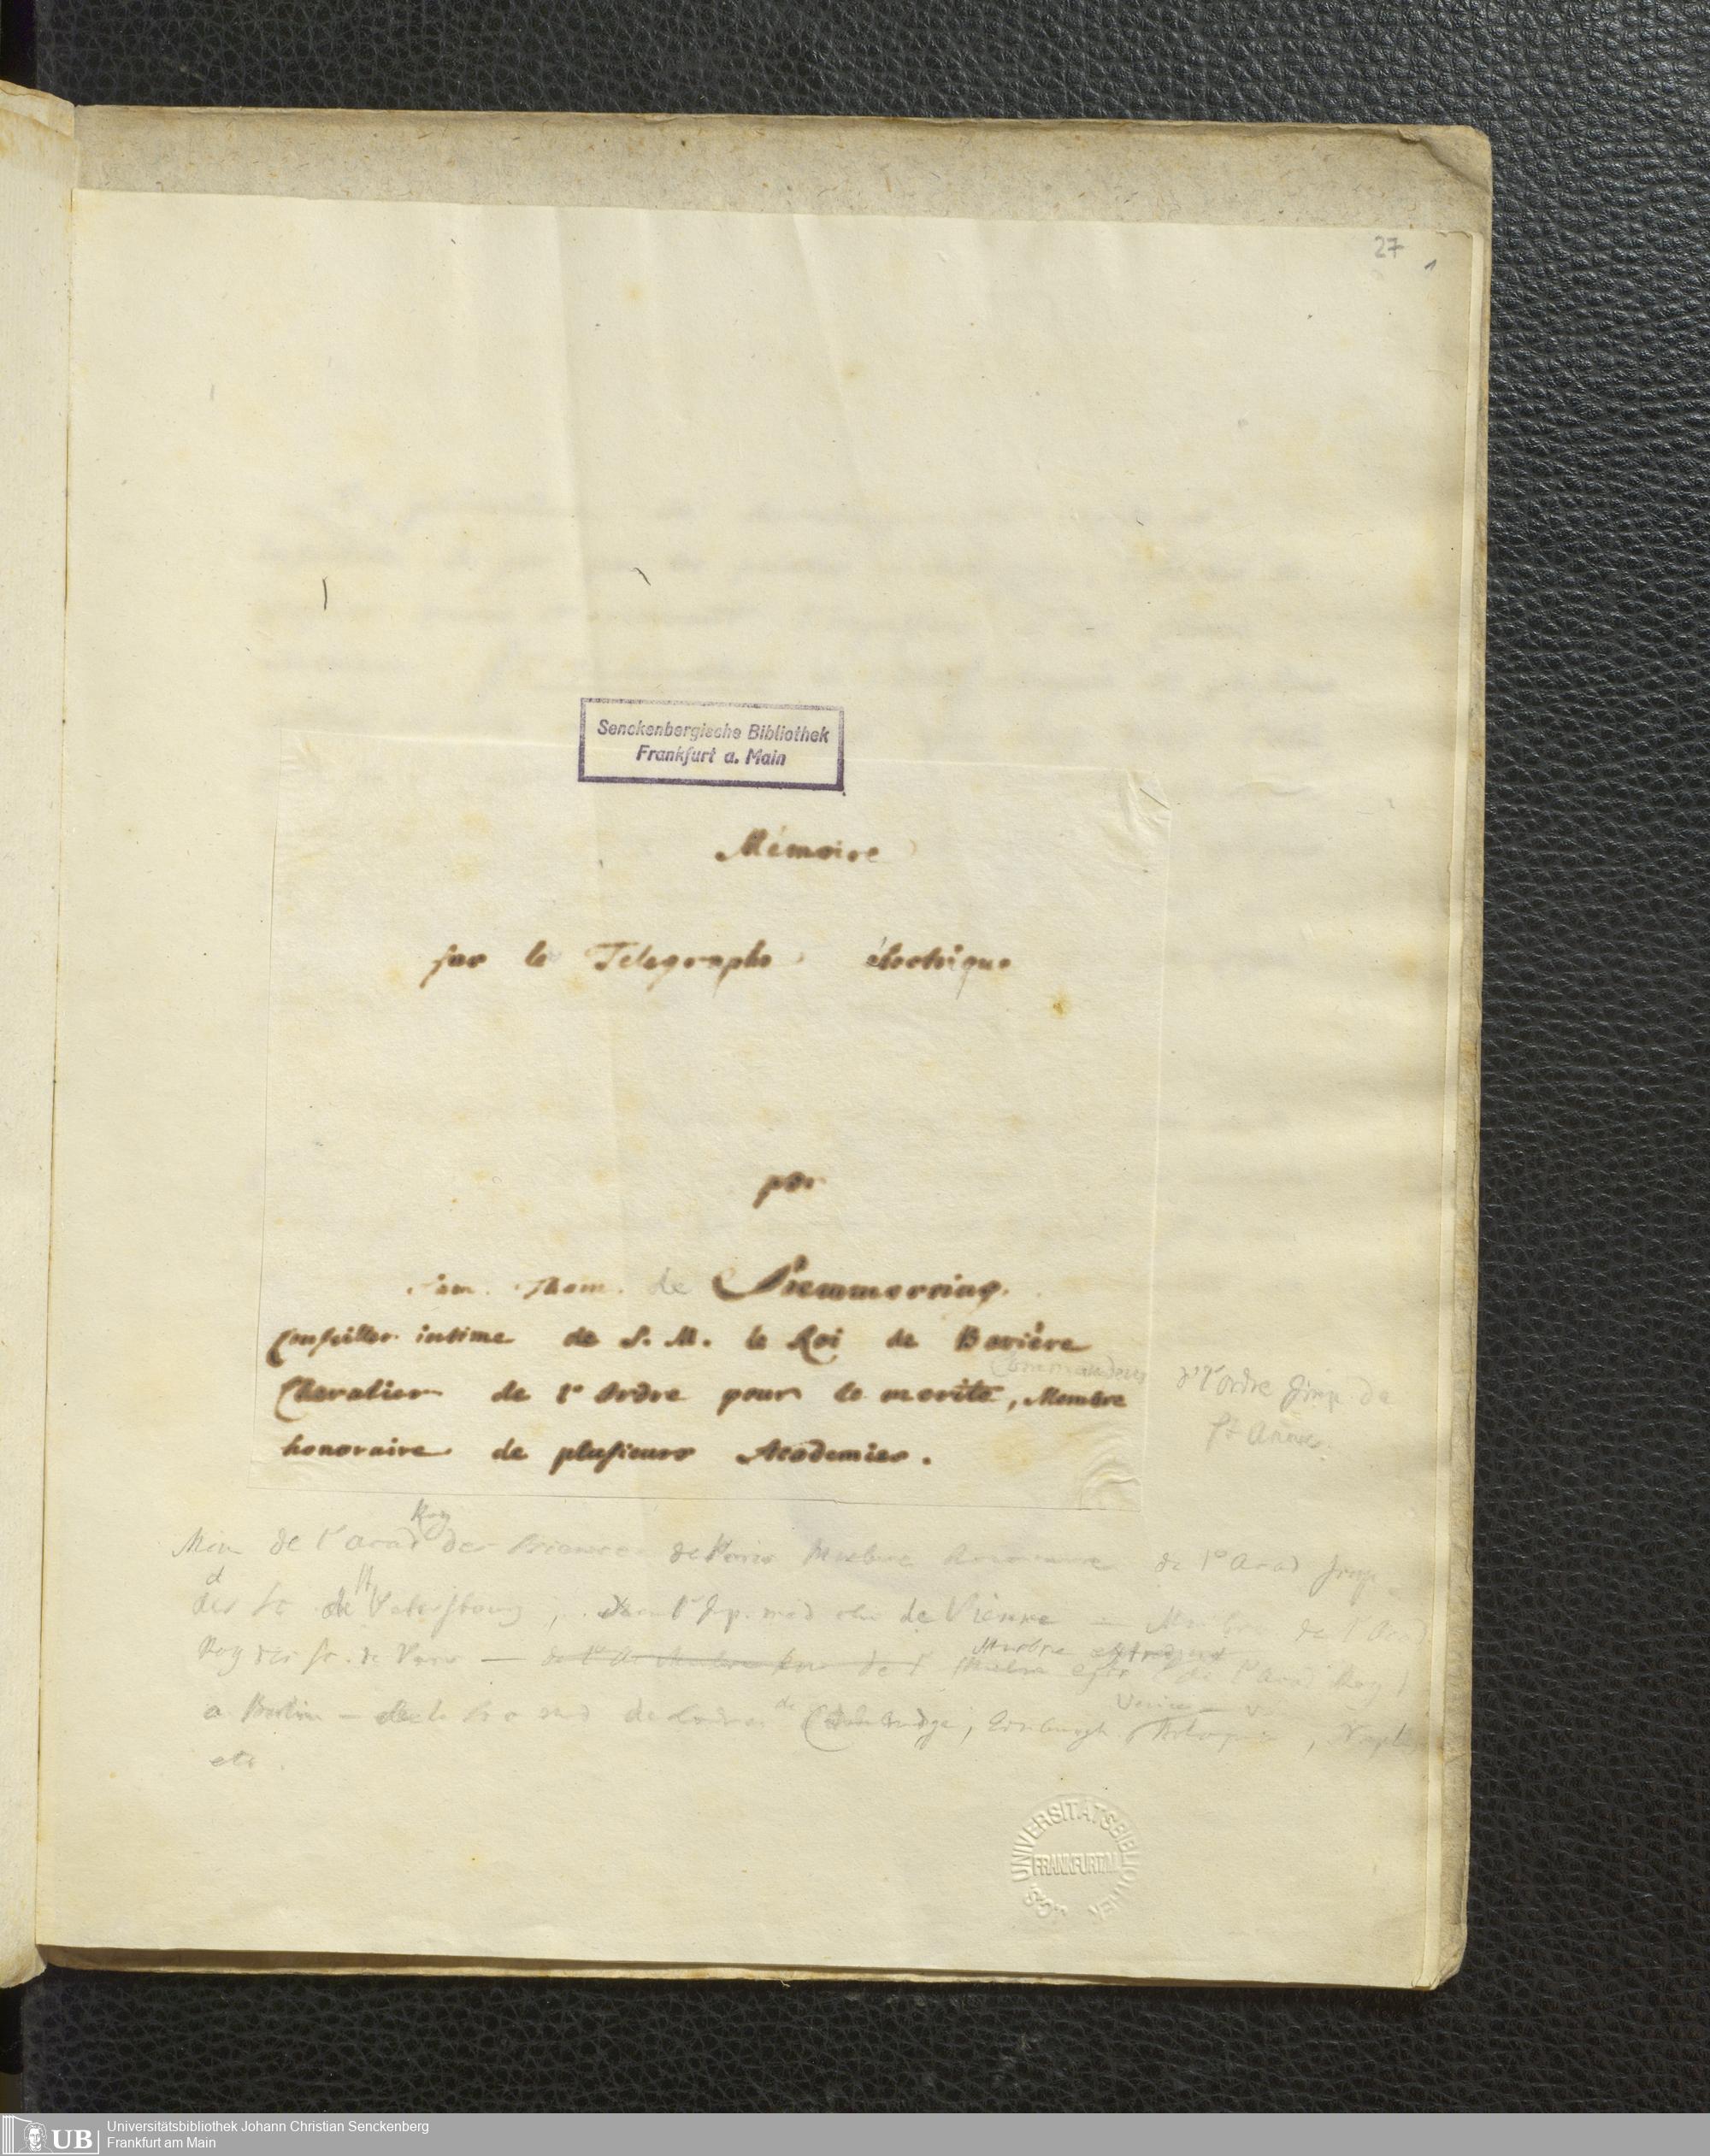 27
1
Senckenbergische Bibliothek
Frankfurt a. Main
Mémoire
sur le Telegraphe électrique
par
Sam. Thom. de Sœmmerring.
Conseiller intime de S. M. le Roi de Bavière
Commandeur d l'ordre Imp de
St Anne.
Chevalier de l'Ordre pour le merite, Membre
honoraire de plusieurs Academies.
Roy
Mem de l'acad des Sciences de Paris Membre honoraire de l'Acad Imp
des Sc de St Petersbourg, de Vienne — Membre de l'Acad
Roy des Sc. de Paris — Membre de l'Acad Roy
a Berlin — de Londres de Cambridge, Edinburgh, Naples
etc.
UNIVERSITÄTSBIBLIOTHEK
FRANKFURT/M.
JCS
UB
Universitätsbibliothek Johann Christian Senckenberg
Frankfurt am Main